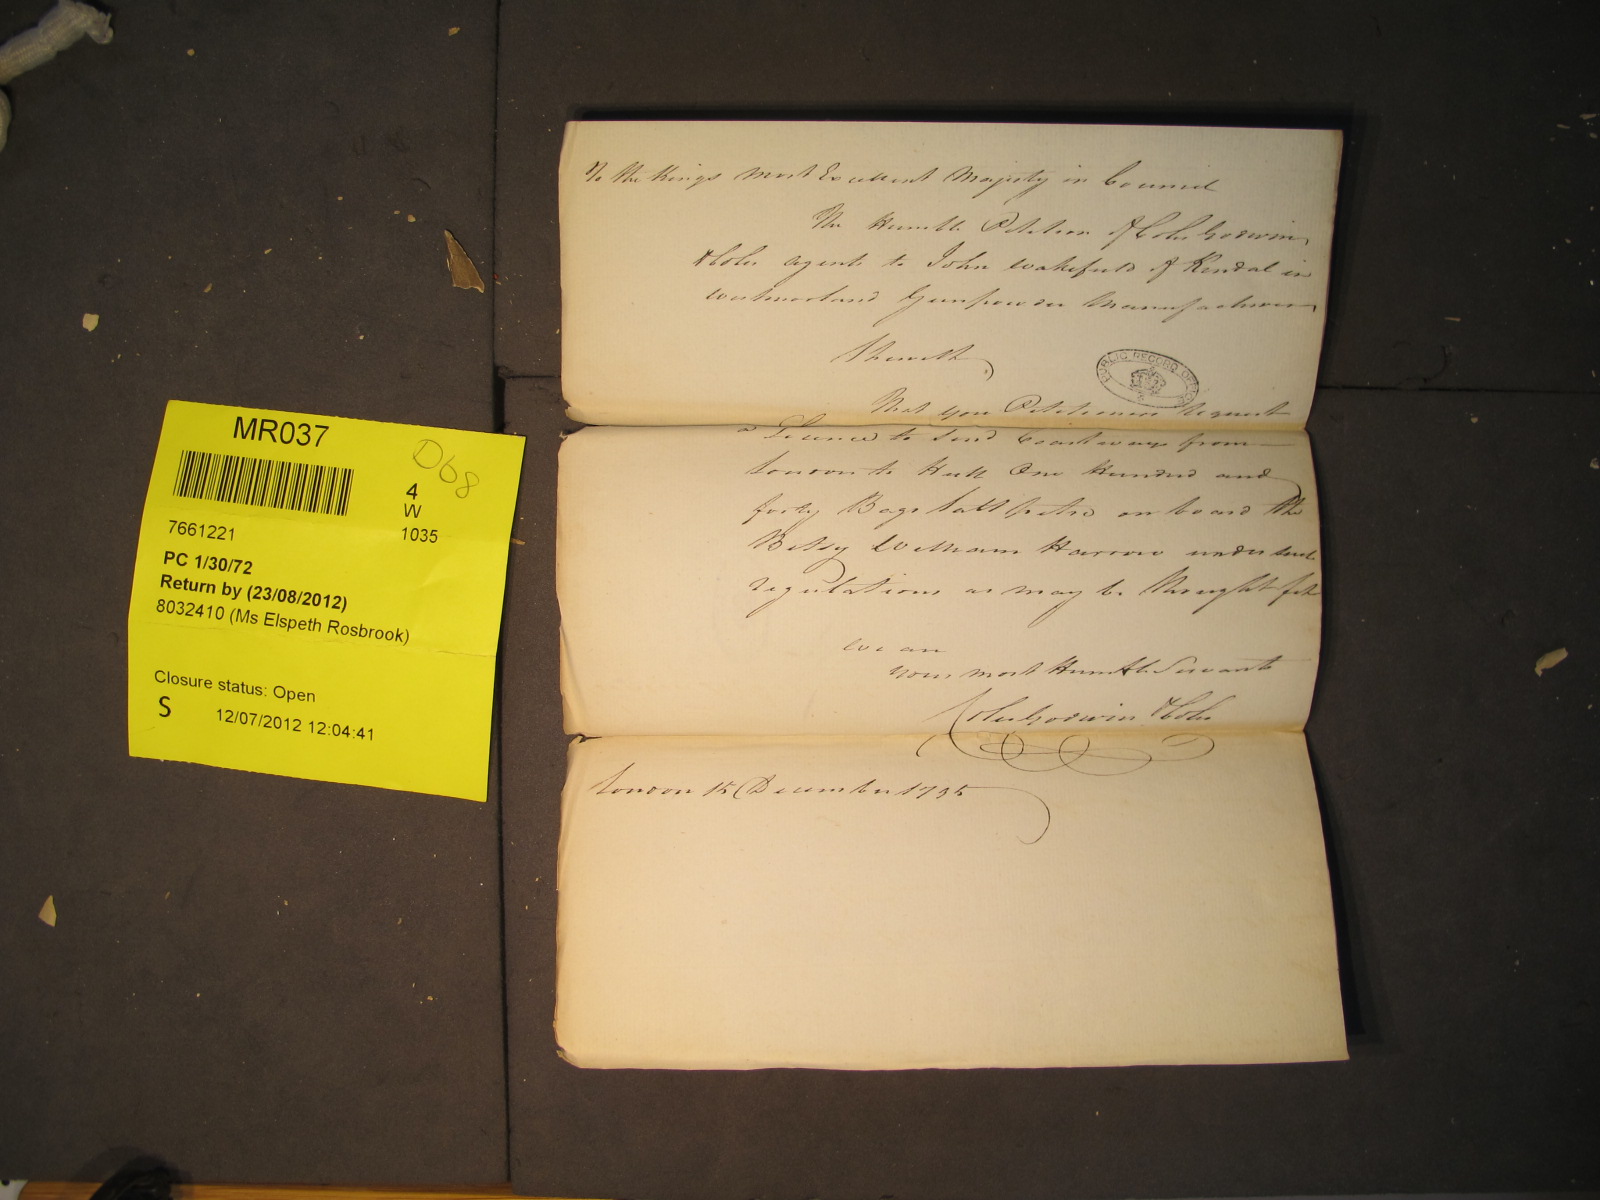 To the Kings most Excellent Majesty in Council
The Humble Petition of Coles Godwin
& Coles agents to John Wakefield of Kendal in
Westmorland Gunpowder Manufacturer
Sheweth
PUBLIC RECORD OFFICE
That your Petitioners Request
a Licence to send Coastways from
London to Hull One Hundred and
forty Bags Salt petre on board the
Betsy William Harrow under such
regulations as may be thought fit
we are
your most Humble Servants
Coles Godwin & Coles
London 15 December 1795
MR037
D68
4
W
7661221
1035
PC 1/30/72
Return by (23/08/2012)
8032410 (Ms Elspeth Rosbrook)
Closure status: Open
S
12/07/2012 12:04:41